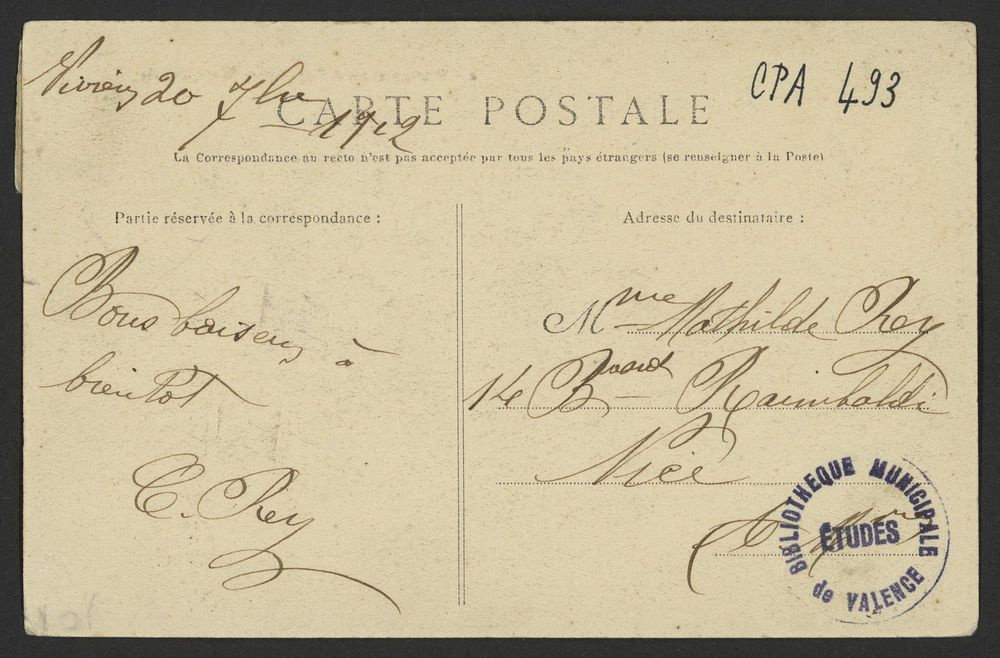 Viviers 20 7bre
1912
CPA 493
CARTE POSTALE
La Correspondance au recto n'est pas acceptée par tous les pays étrangers (se renseigner à la Poste)
Partie réservée à la correspondance :
Adresse du destinataire :
Bons baisers à
bientot
C. Rey
Mme Mathilde Rey
14 Bvard Raimbaldi
Nice
BIBLIOTHEQUE MUNICIPALE
ÉTUDES
de VALENCE